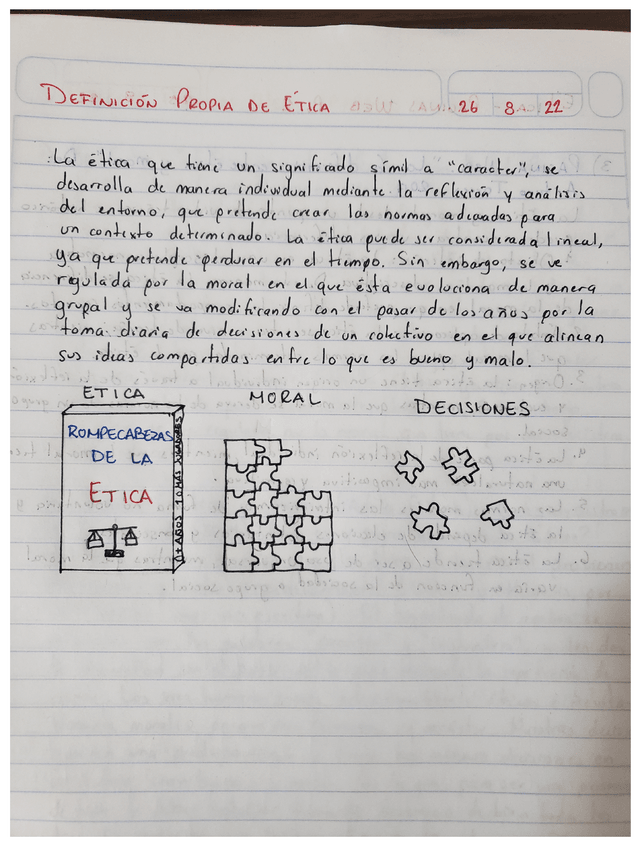 DEFINICIÓN PROPIA DE ÉTICA 26 8 22
La ética que tiene un significado símil a "caracter", se
desarrolla de manera individual mediante la reflexión y análisis
del entorno, que pretende crear las normas adecuadas para
un contexto determinado. La ética puede ser considerada lineal,
ya que pretende perdurar en el tiempo. Sin embargo, se ve
regulada por la moral en el que ésta evoluciona de manera
grupal y se va modificando con el pasar de los años por la
toma diaria de decisiones de un colectivo en el que alinean
sus ideas compartidas entre lo que es bueno y malo.
ETICA MORAL DECISIONES
ROMPECABEZAS
DE LA
ETICA
0+ AÑOS 10 MÁS JUGADORES